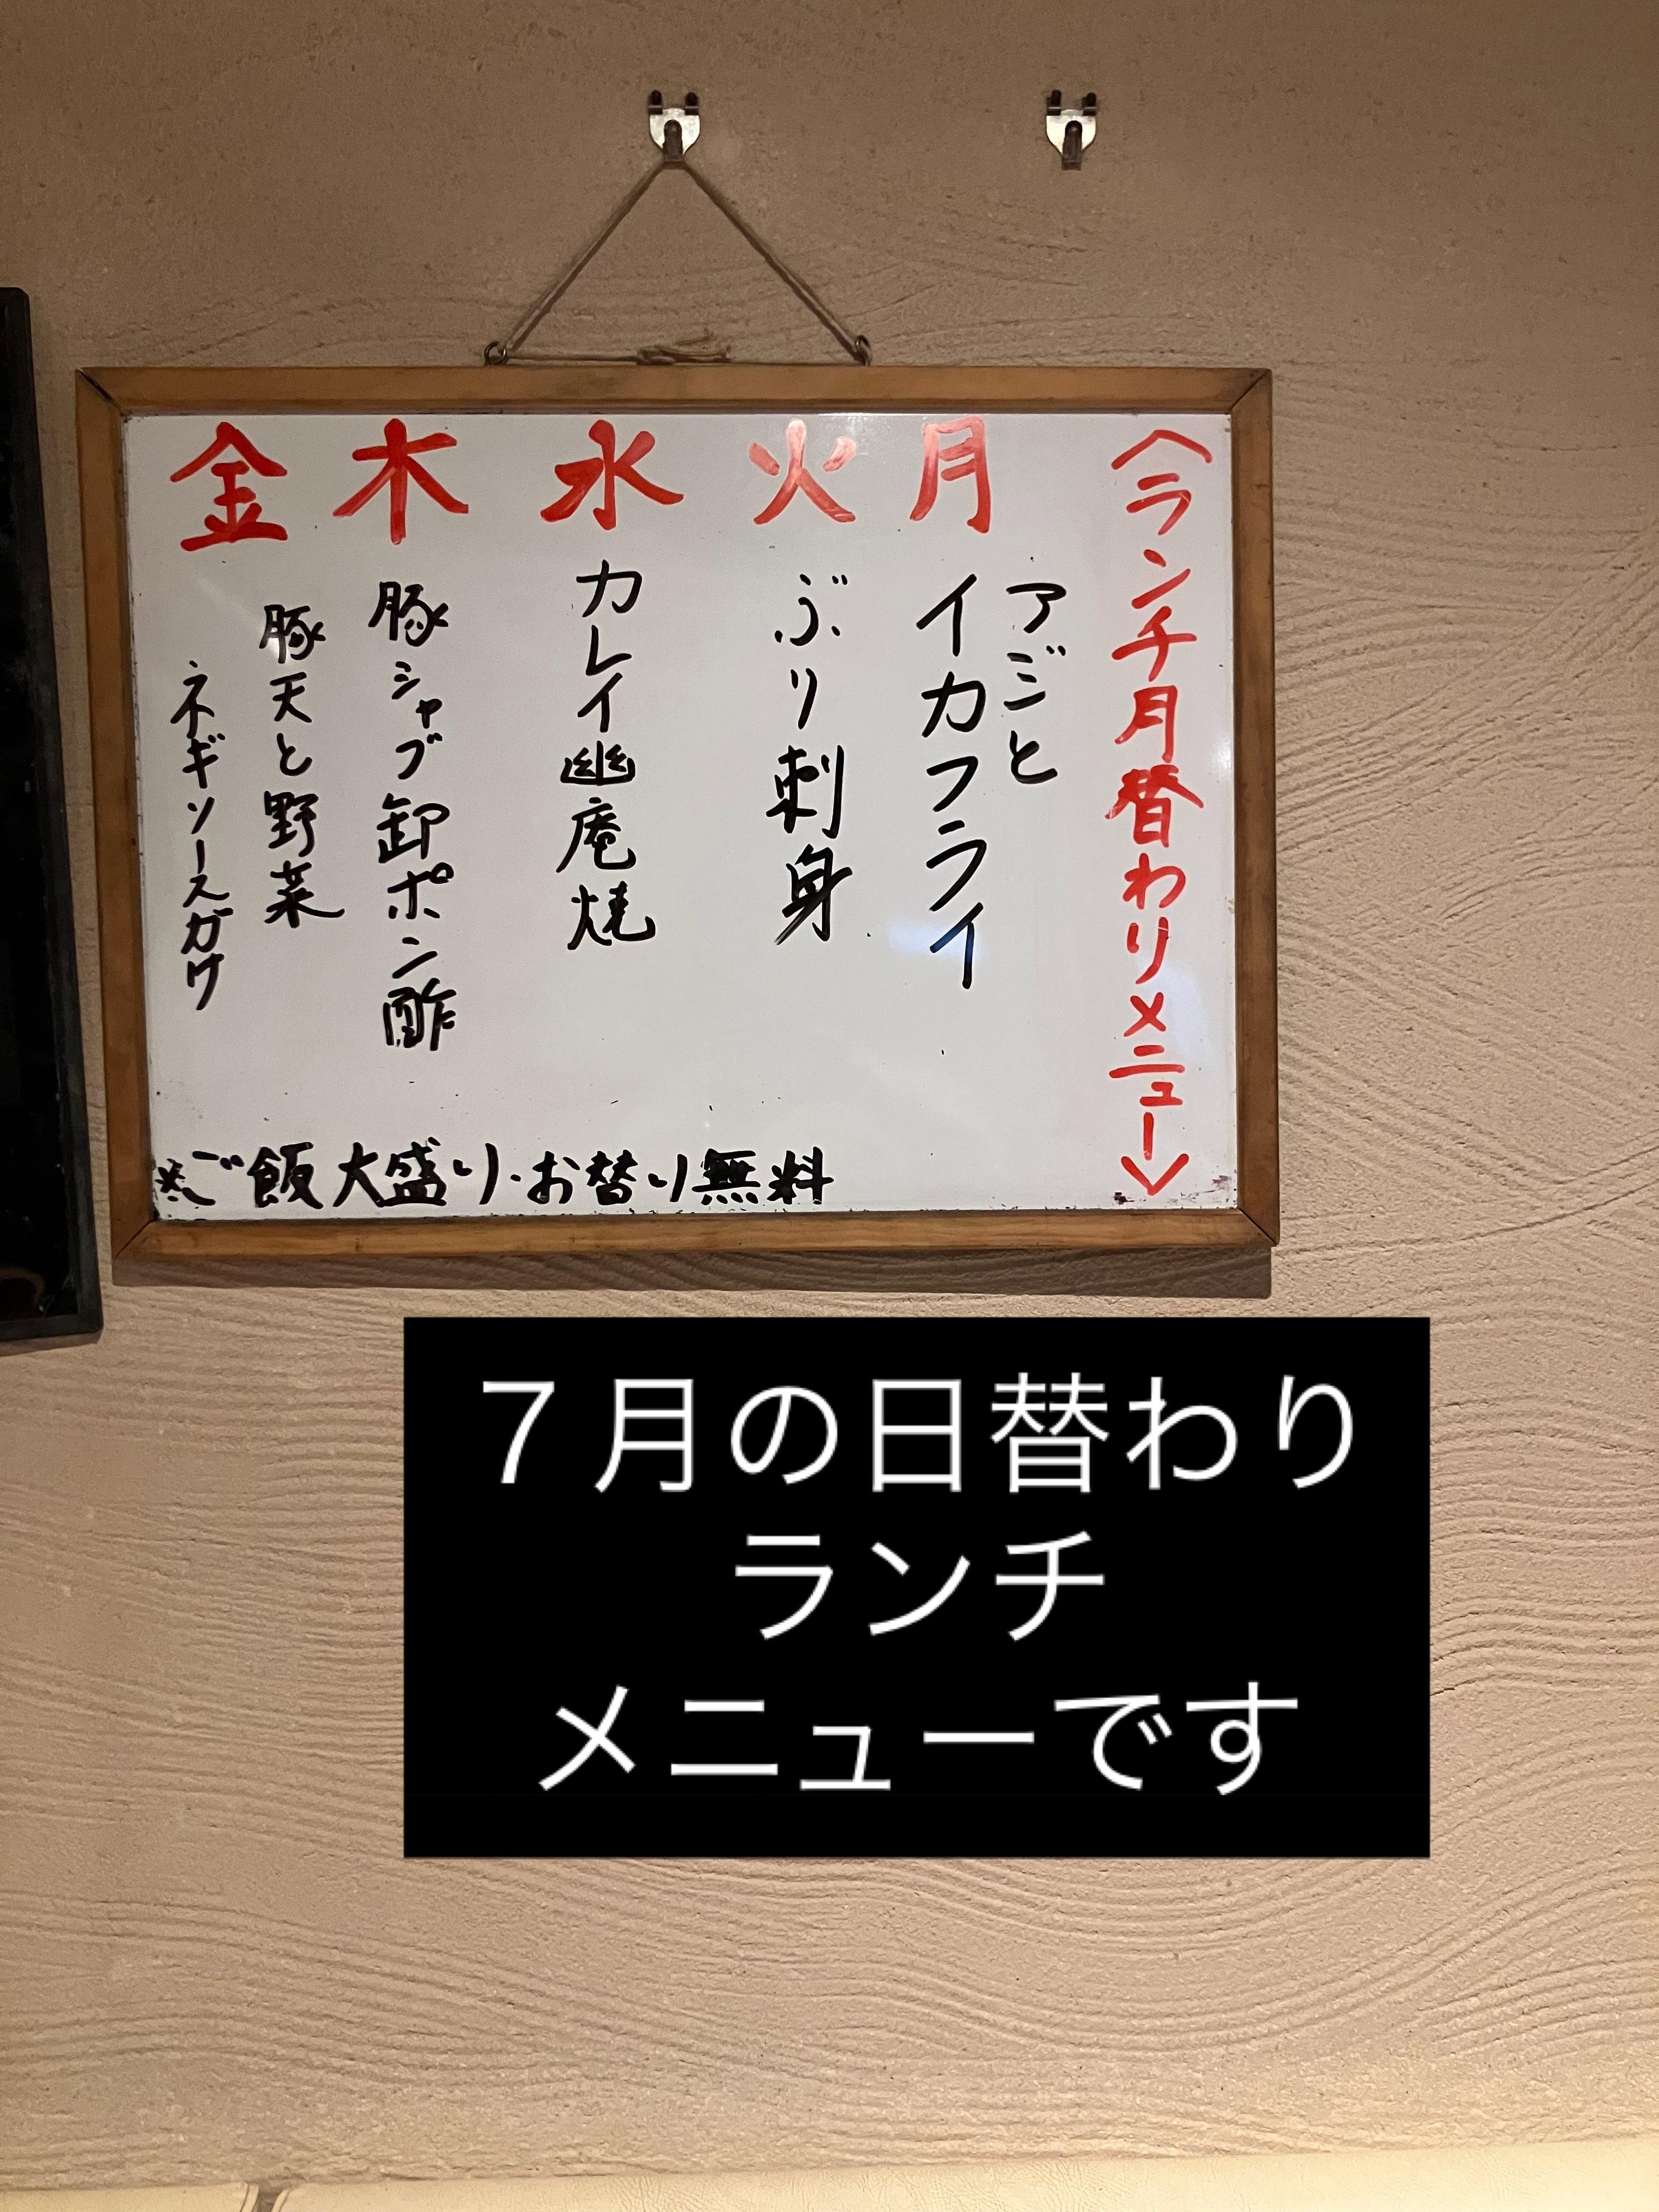 〈ランチ月替わりメニュー〉
月
アジと
イカフライ
火
ぶり刺身
水
カレイ幽庵焼
木
豚シャブ卸ポン酢
金
豚天と野菜
ネギソースガケ
※ご飯大盛り・お替り無料
７月の日替わり
ランチ
メニューです